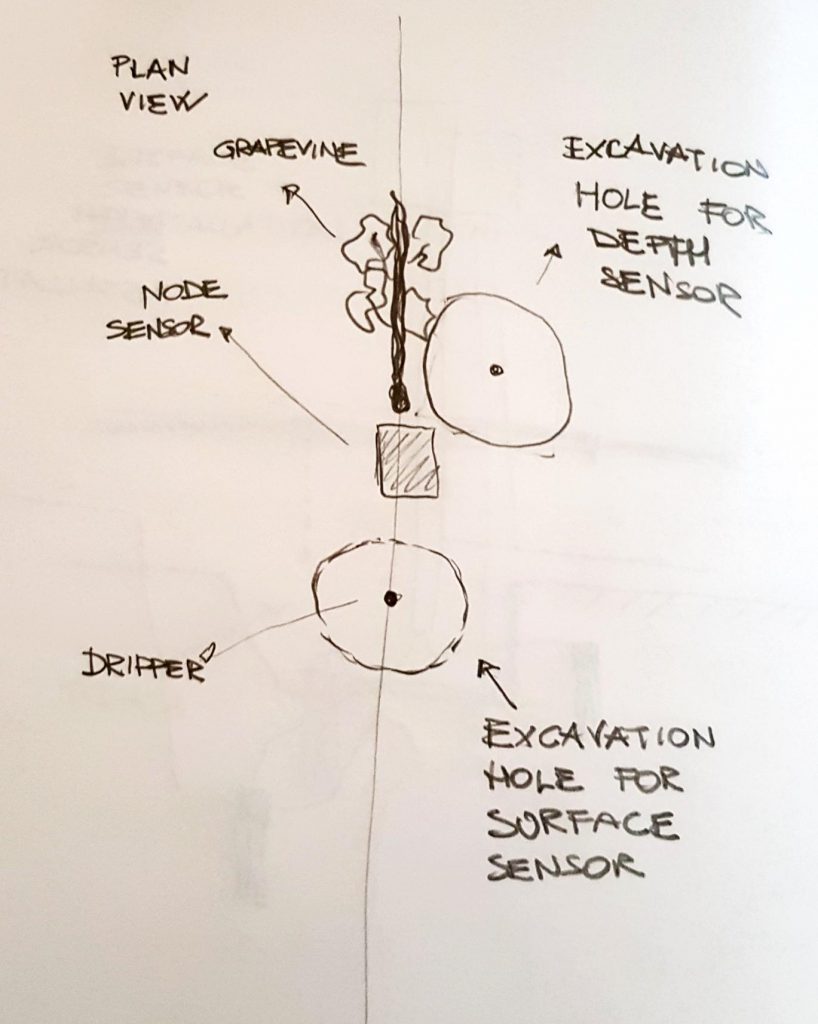 PLAN
VIEW
GRAPEVINE
EXCAVATION
HOLE FOR
DEPTH
SENSOR
NODE
SENSOR
DRIPPER
EXCAVATION
HOLE FOR
SURFACE
SENSOR